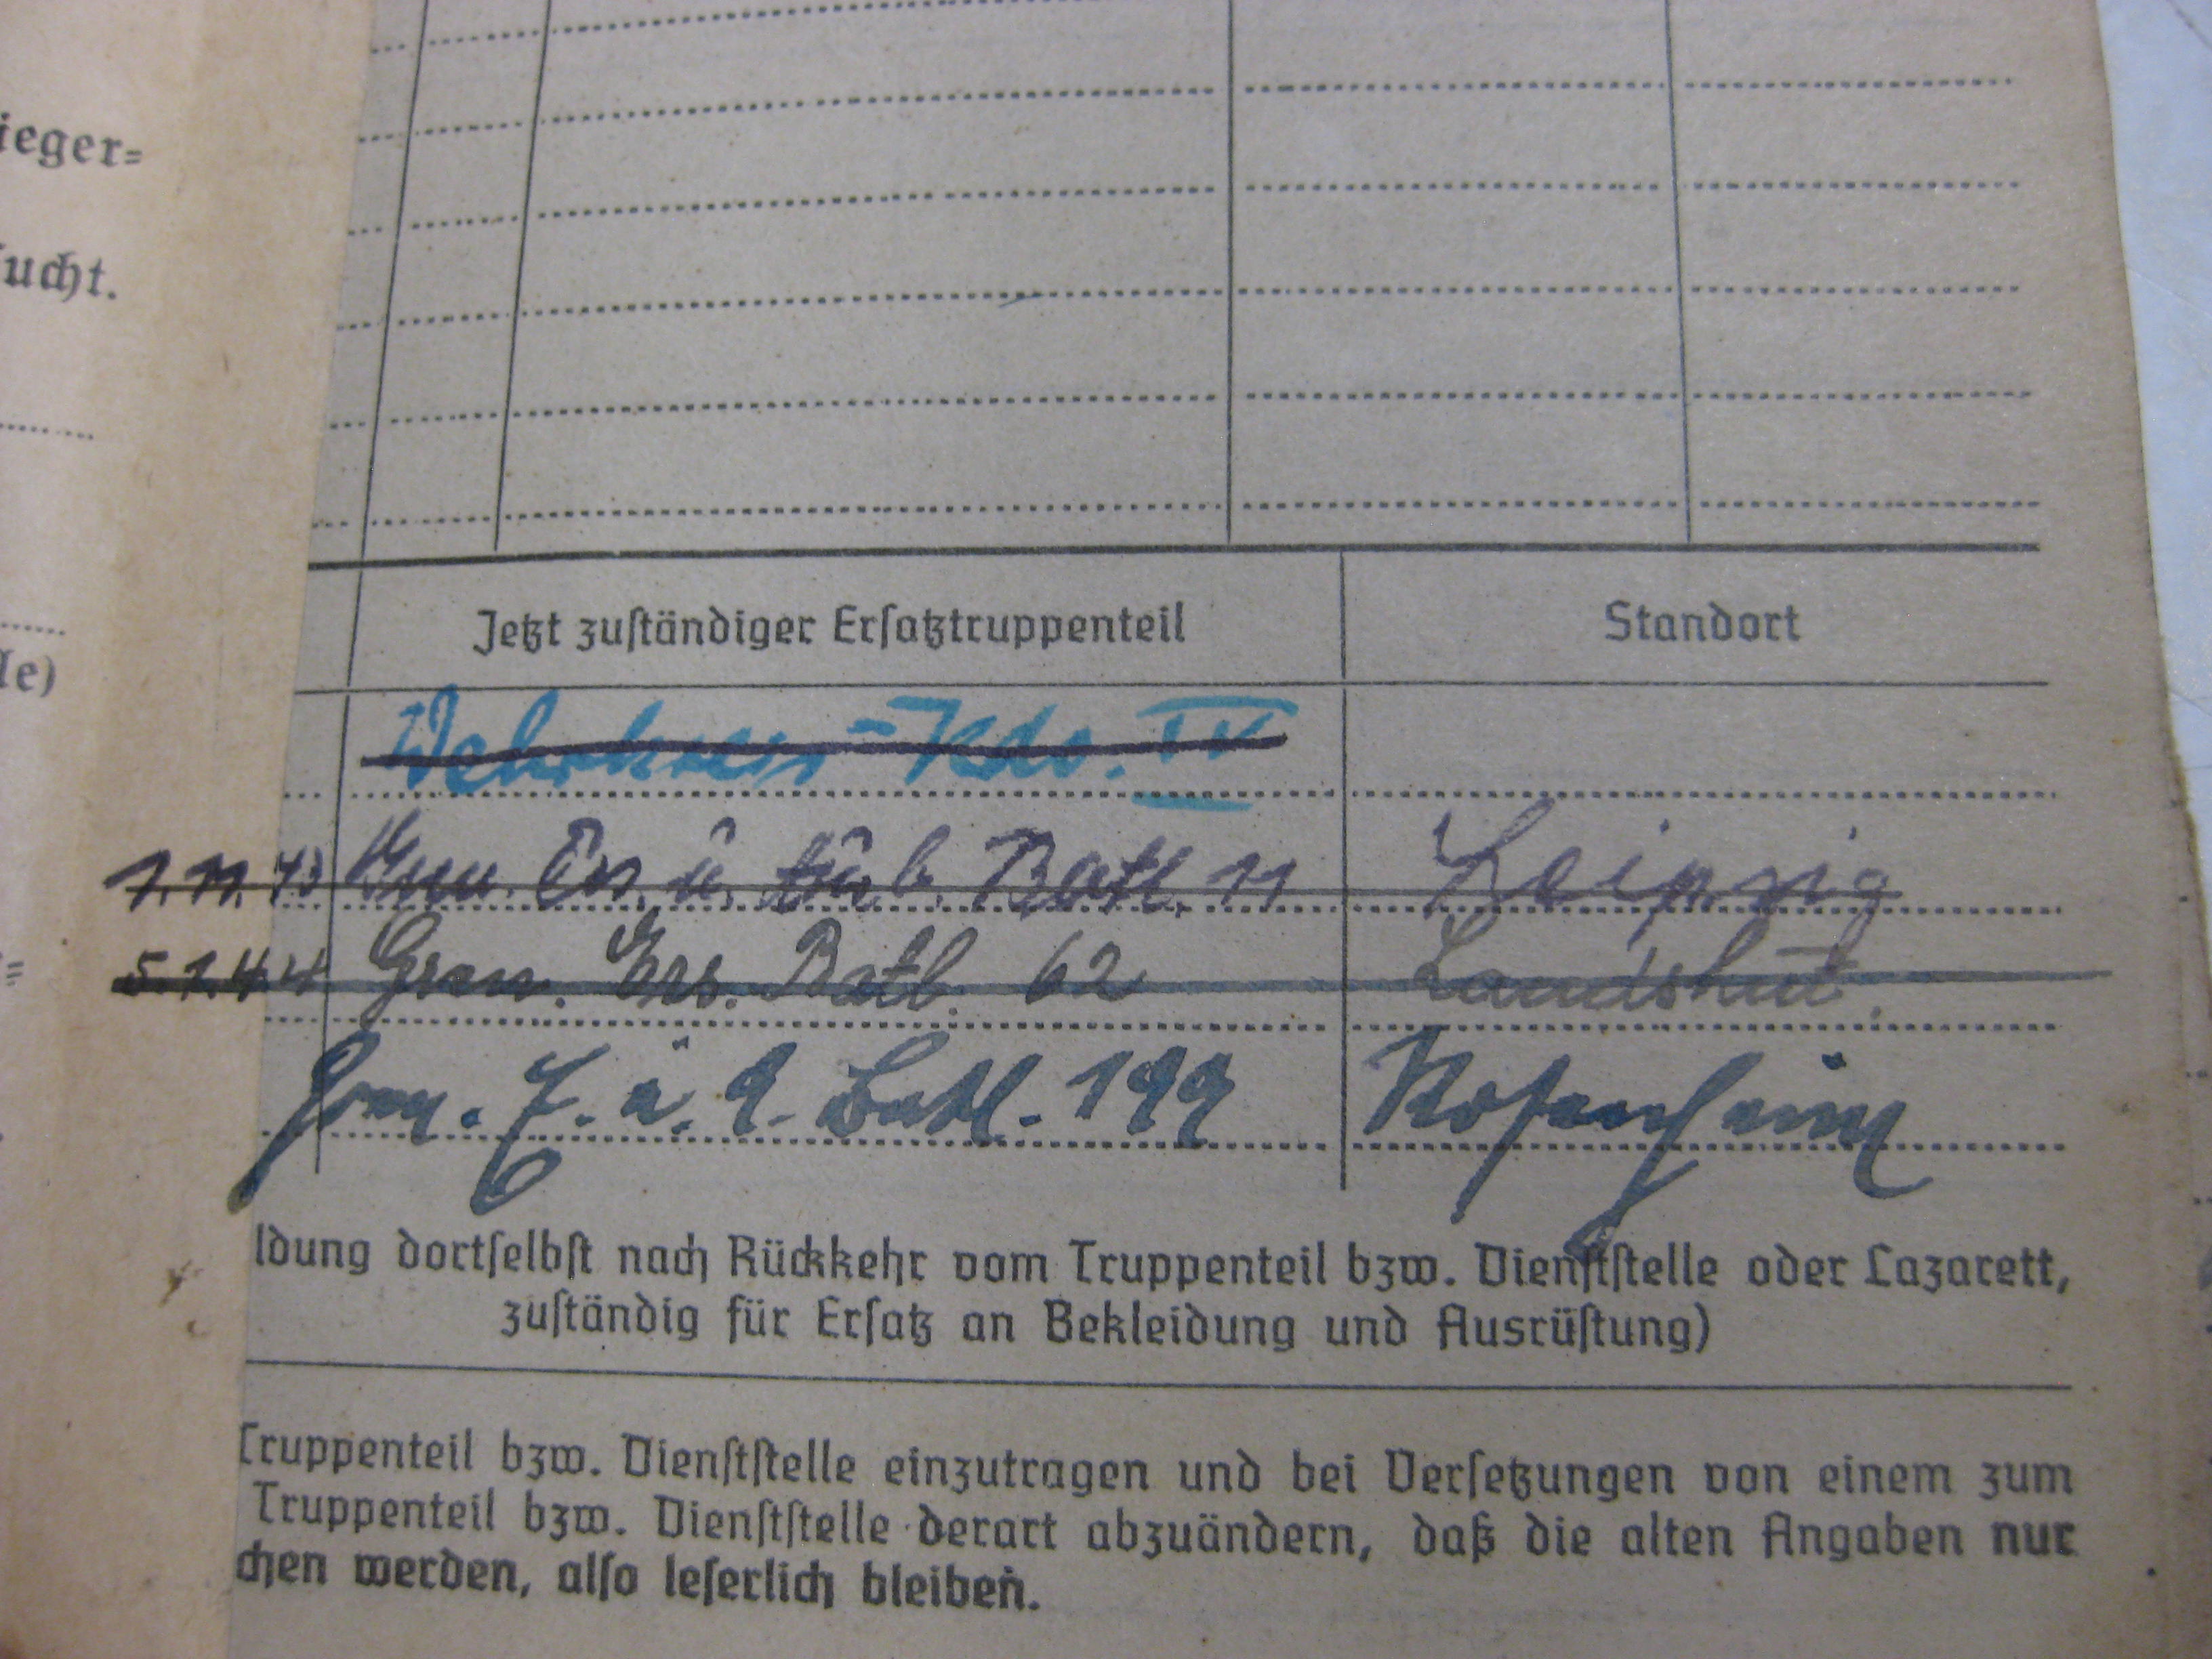 ieger=
ucht.
le)
Jetzt zuständiger Ersatztruppenteil Standort
Wehrkreis-Kdo. IV
1.11.43 Gren. Ers. u. Batl. 11 Leipzig
5.1.44 Gren. Ers. Batl. 62 Landshut.
Gren. E. u. A. Batl. 199 Rosenheim
ldung dortselbst nach Rückkehr vom Truppenteil bzw. Dienststelle oder Lazarett,
zuständig für Ersatz an Bekleidung und Ausrüstung)
Truppenteil bzw. Dienststelle einzutragen und bei Versetzungen von einem zum
Truppenteil bzw. Dienststelle derart abzuändern, daß die alten Angaben nur
chen werden, also leserlich bleiben.